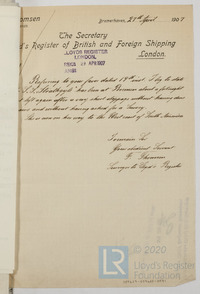 omsen
Bremerhaven, 21st April 1907
The Secretary
d's Register of British and Foreign Shipping
London.
LLOYD'S REGISTER
LONDON.
APR 1907
Referring to your favor dated 18th inst. I beg to state
S.S. Strathgyle has been at Bremen about a fortnight
left again after a very short stoppage without having
and without having asked for a Survey.
She is now on her way to the West coast of South America
I remain Sir
Your obedient Servant
Surveyor to Lloyd's Register
© 2020
Lloyd's Register
Foundation